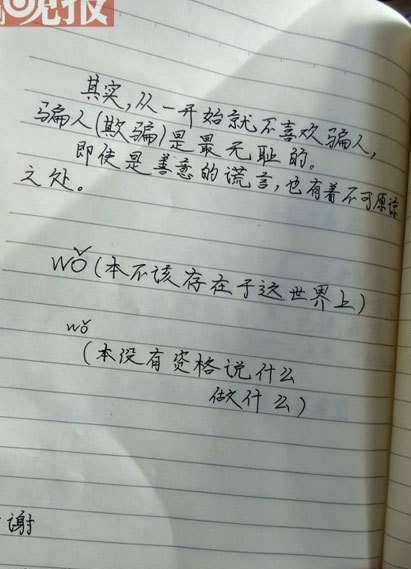 晚报
其实，从一开始就不喜欢骗人，
骗人(欺骗)是最无耻的。
即使是善意的谎言，也有着不可原谅
之处。
wǒ(本不该存在于这世界上)
wǒ
(本没有资格说什么
做什么)
谢